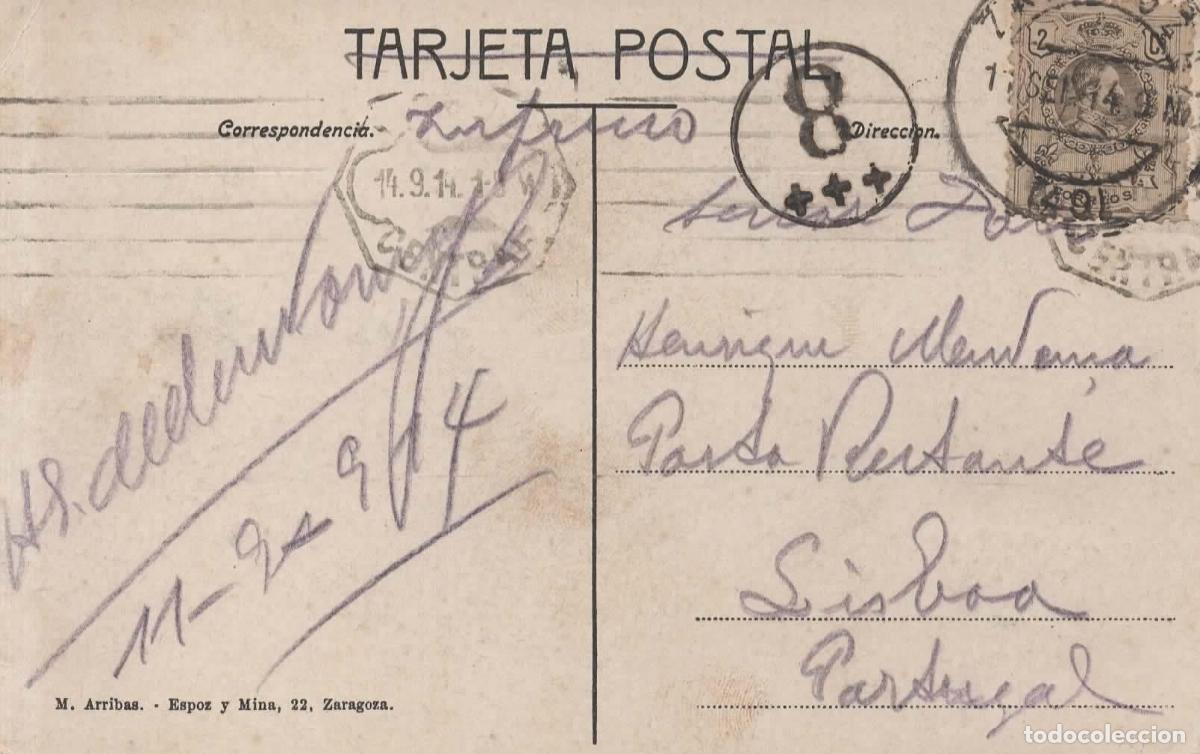 TARJETA POSTAL
Correspondencia.
Impreso
14.9.14.
11-9-914
M. Arribas. - Espoz y Mina, 22, Zaragoza.
8
Direccion.
2
Henrique Mendonça
Posta Restante
Lisboa
Portugal
todocoleccion